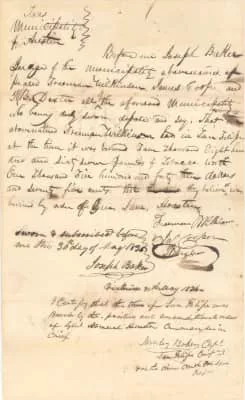 Texas
Municipality
of Austin
Before me Joseph Baker
Judge of the municipality abovesaid ap
peared Freeman Wilkinson James Cooper and
of the aforesaid Municipality
who being duly sworn depose and say. That the
abovenamed Freeman Wilkinson lost in San Felipe
at the time it was burned Four Thousand Eight hun
dred and sixty seven pounds of Tobacco worth
One Thousand Five hundred and forty three dollars
and seventy five cents that they believe was
burned by order of Genl Sam Houston
Freeman Wilkinson
Cooper
Sworn & subscribed before
me this 30 day of May 1836
Joseph Baker
I certify that the town of San Felipe was
burned by the positive and unconditional orders
of Genl Samuel Houston Commander in
Chief
Moseley Baker Capt
San Felipe Compy